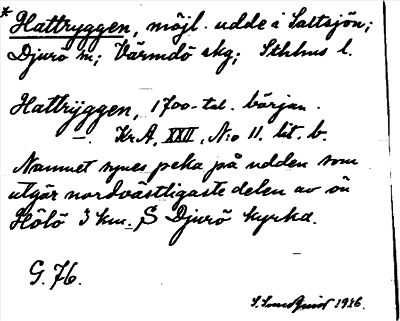 *Hattryggen, möjl. udde i Saltsjön;
Djurö sn; Värmdö skg; Sthlms l.
Hattrÿggen, 1700-tal. början.
—. Kr A, XXII, No 11. lit. b.
Namnet synes peka på udden som
utgör nordvästligaste delen av ön
Hölö 3 km. S Djurö kyrka.
G. 76.
S. Sundquist 1926.